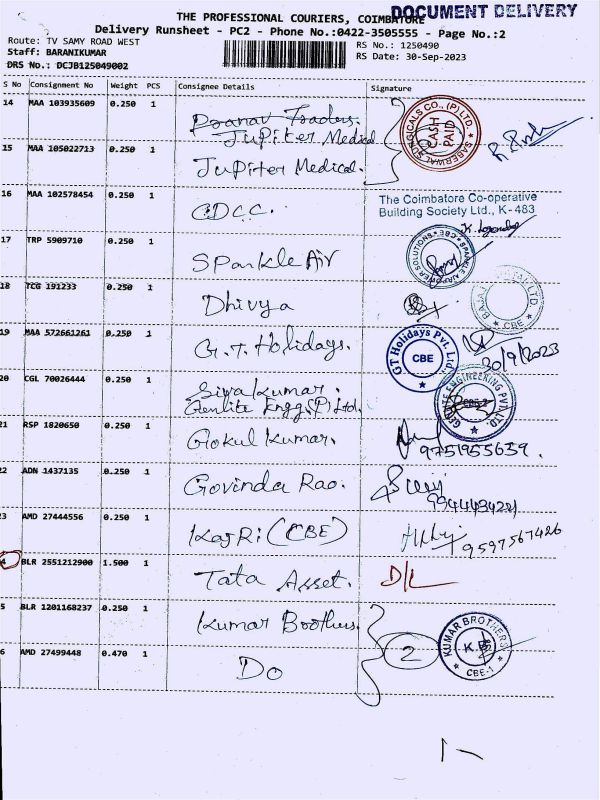 THE PROFESSIONAL COURIERS, COIMBATORE
DOCUMENT DELIVERY
Delivery Runsheet - PC2 - Phone No.:0422-3505555 - Page No.:2
Route: TV SAMY ROAD WEST
RS No.: 1250490
Staff: BARANIKUMAR
RS Date: 30-Sep-2023
DRS No.: DCJB125049002
S No Consignment No Weight PCS Consignee Details Signature
14 MAA 103935609 0.250 1
Pranav Traders.
Jupiter Medical
SABERWAL SURGICALS CO., (P) LTD.
CASH PAID
15 MAA 105022713 0.250 1
Jupiter Medical.
16 MAA 102578454 0.250 1
CDCC.
The Coimbatore Co-operative
Building Society Ltd., K-483
17 TRP 5909710 0.250 1
Sparkle Air
18 TCG 191233 0.250 1
Dhivya
CBE
19 MAA 572661261 0.250 1
G.T. Holidays.
GT Holidays Pvt. Ltd.
CBE
30/9/2023
20 CGL 70026444 0.250 1
Siva Kumar.
Genlite Engg (P) Ltd.
GENLITE ENGINEERING PVT. LTD.
21 RSP 1820650 0.250 1
Gokul Kumar.
9751955639.
22 ADN 1437135 0.250 1
Govinda Rao.
3 AMD 27444556 0.250 1
KagRi (CBE)
9597567426
4 BLR 2551212900 1.500 1
Tata Asset.
D/L
5 BLR 1201168237 0.250 1
Kumar Brothers.
2
KUMAR BROTHERS
K.B
CBE-1
6 AMD 27499448 0.470 1
Do